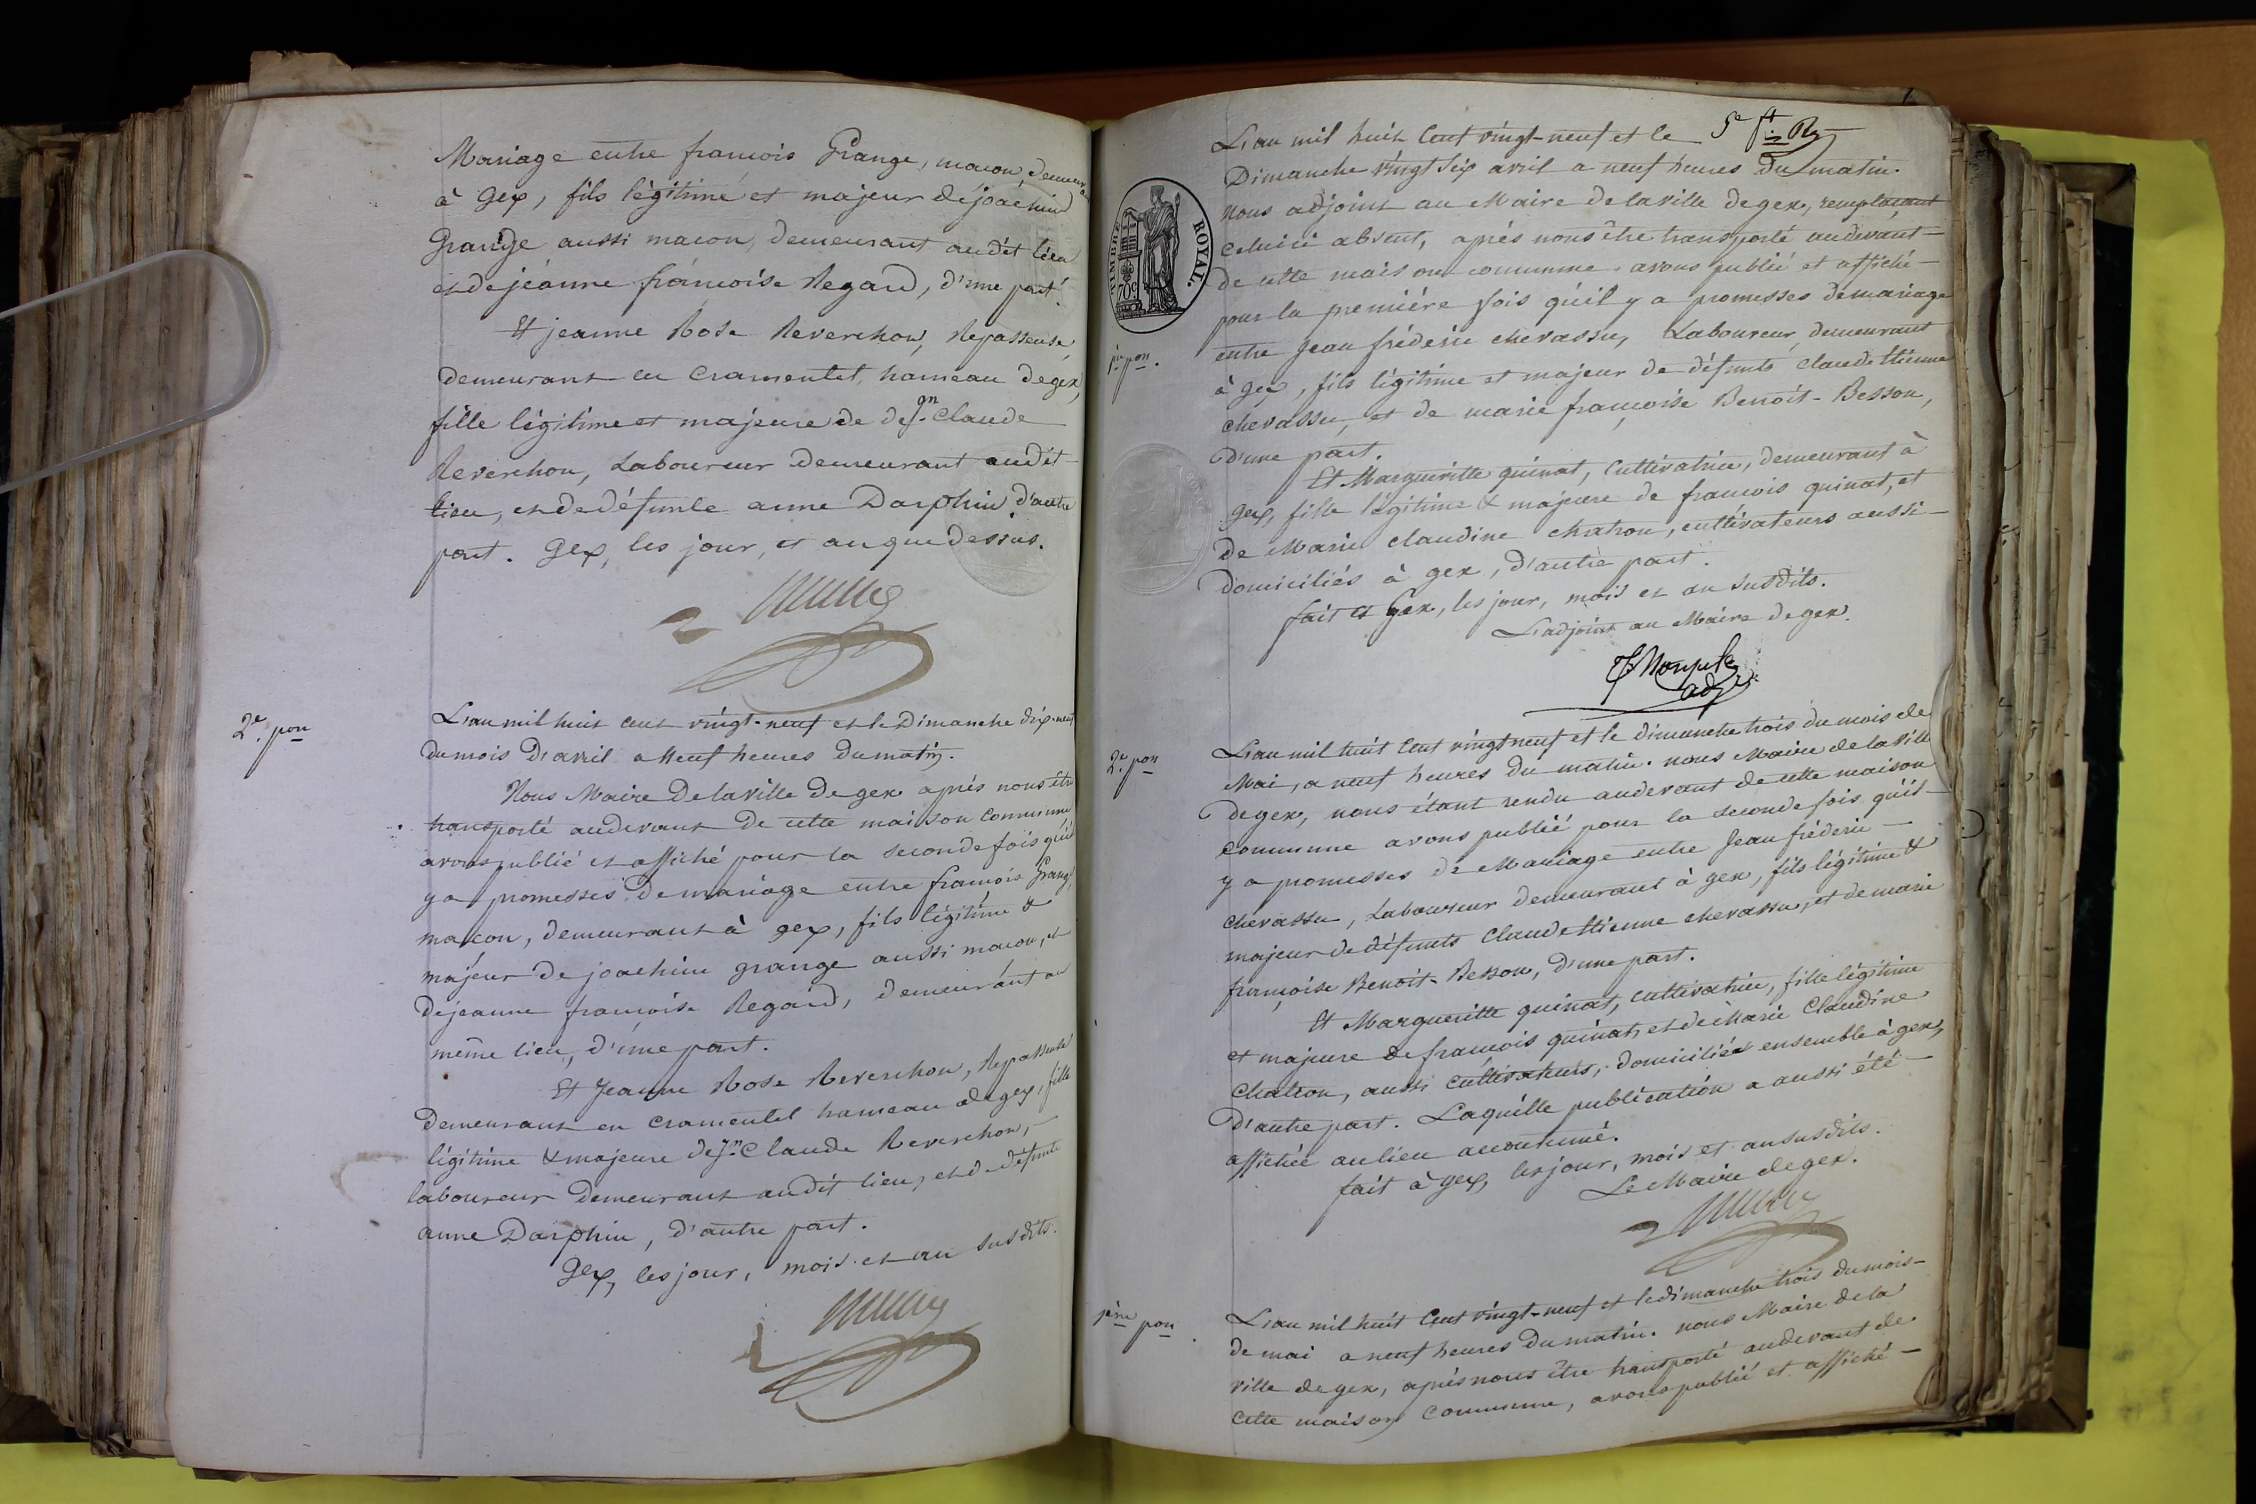 Mariage entre francois Grange, macon, demeurant
à Gex, fils légitime et majeur de joachim
Grange aussi macon, demeurant audit lieu
et de jeanne francoise Regard, d'une part.
Et jeanne Rose Reverchon, Repasseuse,
demeurant en Cramentet, hameau de gex,
fille légitime et majeure de de jn Claude
Reverchon, Laboureur demeurant audit
lieu, et de défunte anne Darphin d'autre
part. Gex, les jour, et an que dessus.
2e pon
L'an mil huit cent vingt-neuf et le Dimanche dix-neuf
du mois d'avril a Neuf heures du matin.
Nous Maire de la ville de gex après nous être
transporté audevant de cette maison commune
avons publié et affiché pour la seconde fois qu'il
y a promesses de mariage entre francois Grange,
macon, demeurant à gex, fils légitime &
majeur de joachim grange aussi macon, et
de jeanne francoise Regard, demeurant au
même lieu, d'une part.
Et Jeanne Rose Reverchon, Repasseuse
demeurant en Cramentet hameau de gex, fille
légitime & majeure de jn Claude Reverchon,
laboureur demeurant audit lieu, et de défunte
anne Darphin, d'autre part.
Gex, les jour, mois et an susdits.
5e ft
L'an mil huit Cent vingt-neuf et le
Dimanche vingt six avril a neuf heures du matin.
nous adjoint au Maire de la ville de gex, remplaçant
celuici absent, après nous être transporté audevant
de cette maison commune avons publié et affiché
pour la première fois qu'il y a promesses de mariage
TIMBRE ROYAL.
70c
1ère pon.
entre Jean fréderic chevassu, Laboureur, demeurant
à gex, fils légitime et majeur de défunts claude Etienne
chevassu, et de marie françoise Benoit-Besson,
d'une part.
Et Margueritte quinat, Cultivatrice, demeurant à
gex, fille légitime & majeure de francois quinat, et
de Marie claudine chatron, cultivateurs aussi
domiciliés à gex, d'autre part.
fait à Gex, les jour, mois et an susdits.
L'adjoint au Maire de gex.
adjt
2e. pon
L'an mil huit Cent vingt neuf et le dimanche trois du mois de
Mai, a neuf heures du matin. nous Maire de la ville
de gex, nous étant rendu audevant de cette maison
commune avons publié pour la seconde fois qu'il
y a promesses de Mariage entre Jean fréderic
chevassu, Laboureur demeurant à gex, fils légitime &
majeur de défunts Claude Etienne chevassu, et de marie
françoise Benoit-Besson, d'une part.
Et Margueritte quinat, cultivatrice, fille légitime
et majeure de francois quinat, et de Marie Claudine
Chatron, aussi cultivateurs, domiciliés ensemble à gex,
d'autre part. Laquelle publication a aussi été
affichée au lieu accoutumé.
fait à gex, les jour, mois et an susdits.
Le Maire de gex.
1ère pon
L'an mil huit Cent vingt-neuf et le dimanche trois du mois
de mai a neuf heures du matin. nous Maire de la
ville de gex, après nous être transporté audevant de
cette maison commune, avons publié et affiché